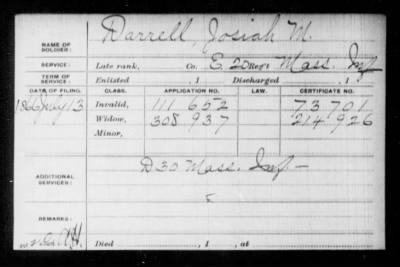 Darrell, Josiah M.
NAME OF SOLDIER:
SERVICE: Late rank, Co. E. 20 Reg't Mass. Inf
TERM OF SERVICE: Enlisted , 1 Discharged , 1
DATE OF FILING. CLASS. APPLICATION NO. LAW. CERTIFICATE NO.
1866 July 13 Invalid, 111 652 73 701
Widow, 308 937 214 926
Minor,
ADDITIONAL SERVICES: D 30 Mass. Inf —
REMARKS:
Died , 1 , at